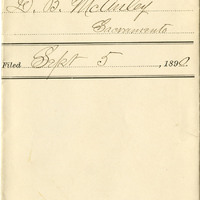 D. B. McAuley
Sacramento
Filed Sept 5, 1890.